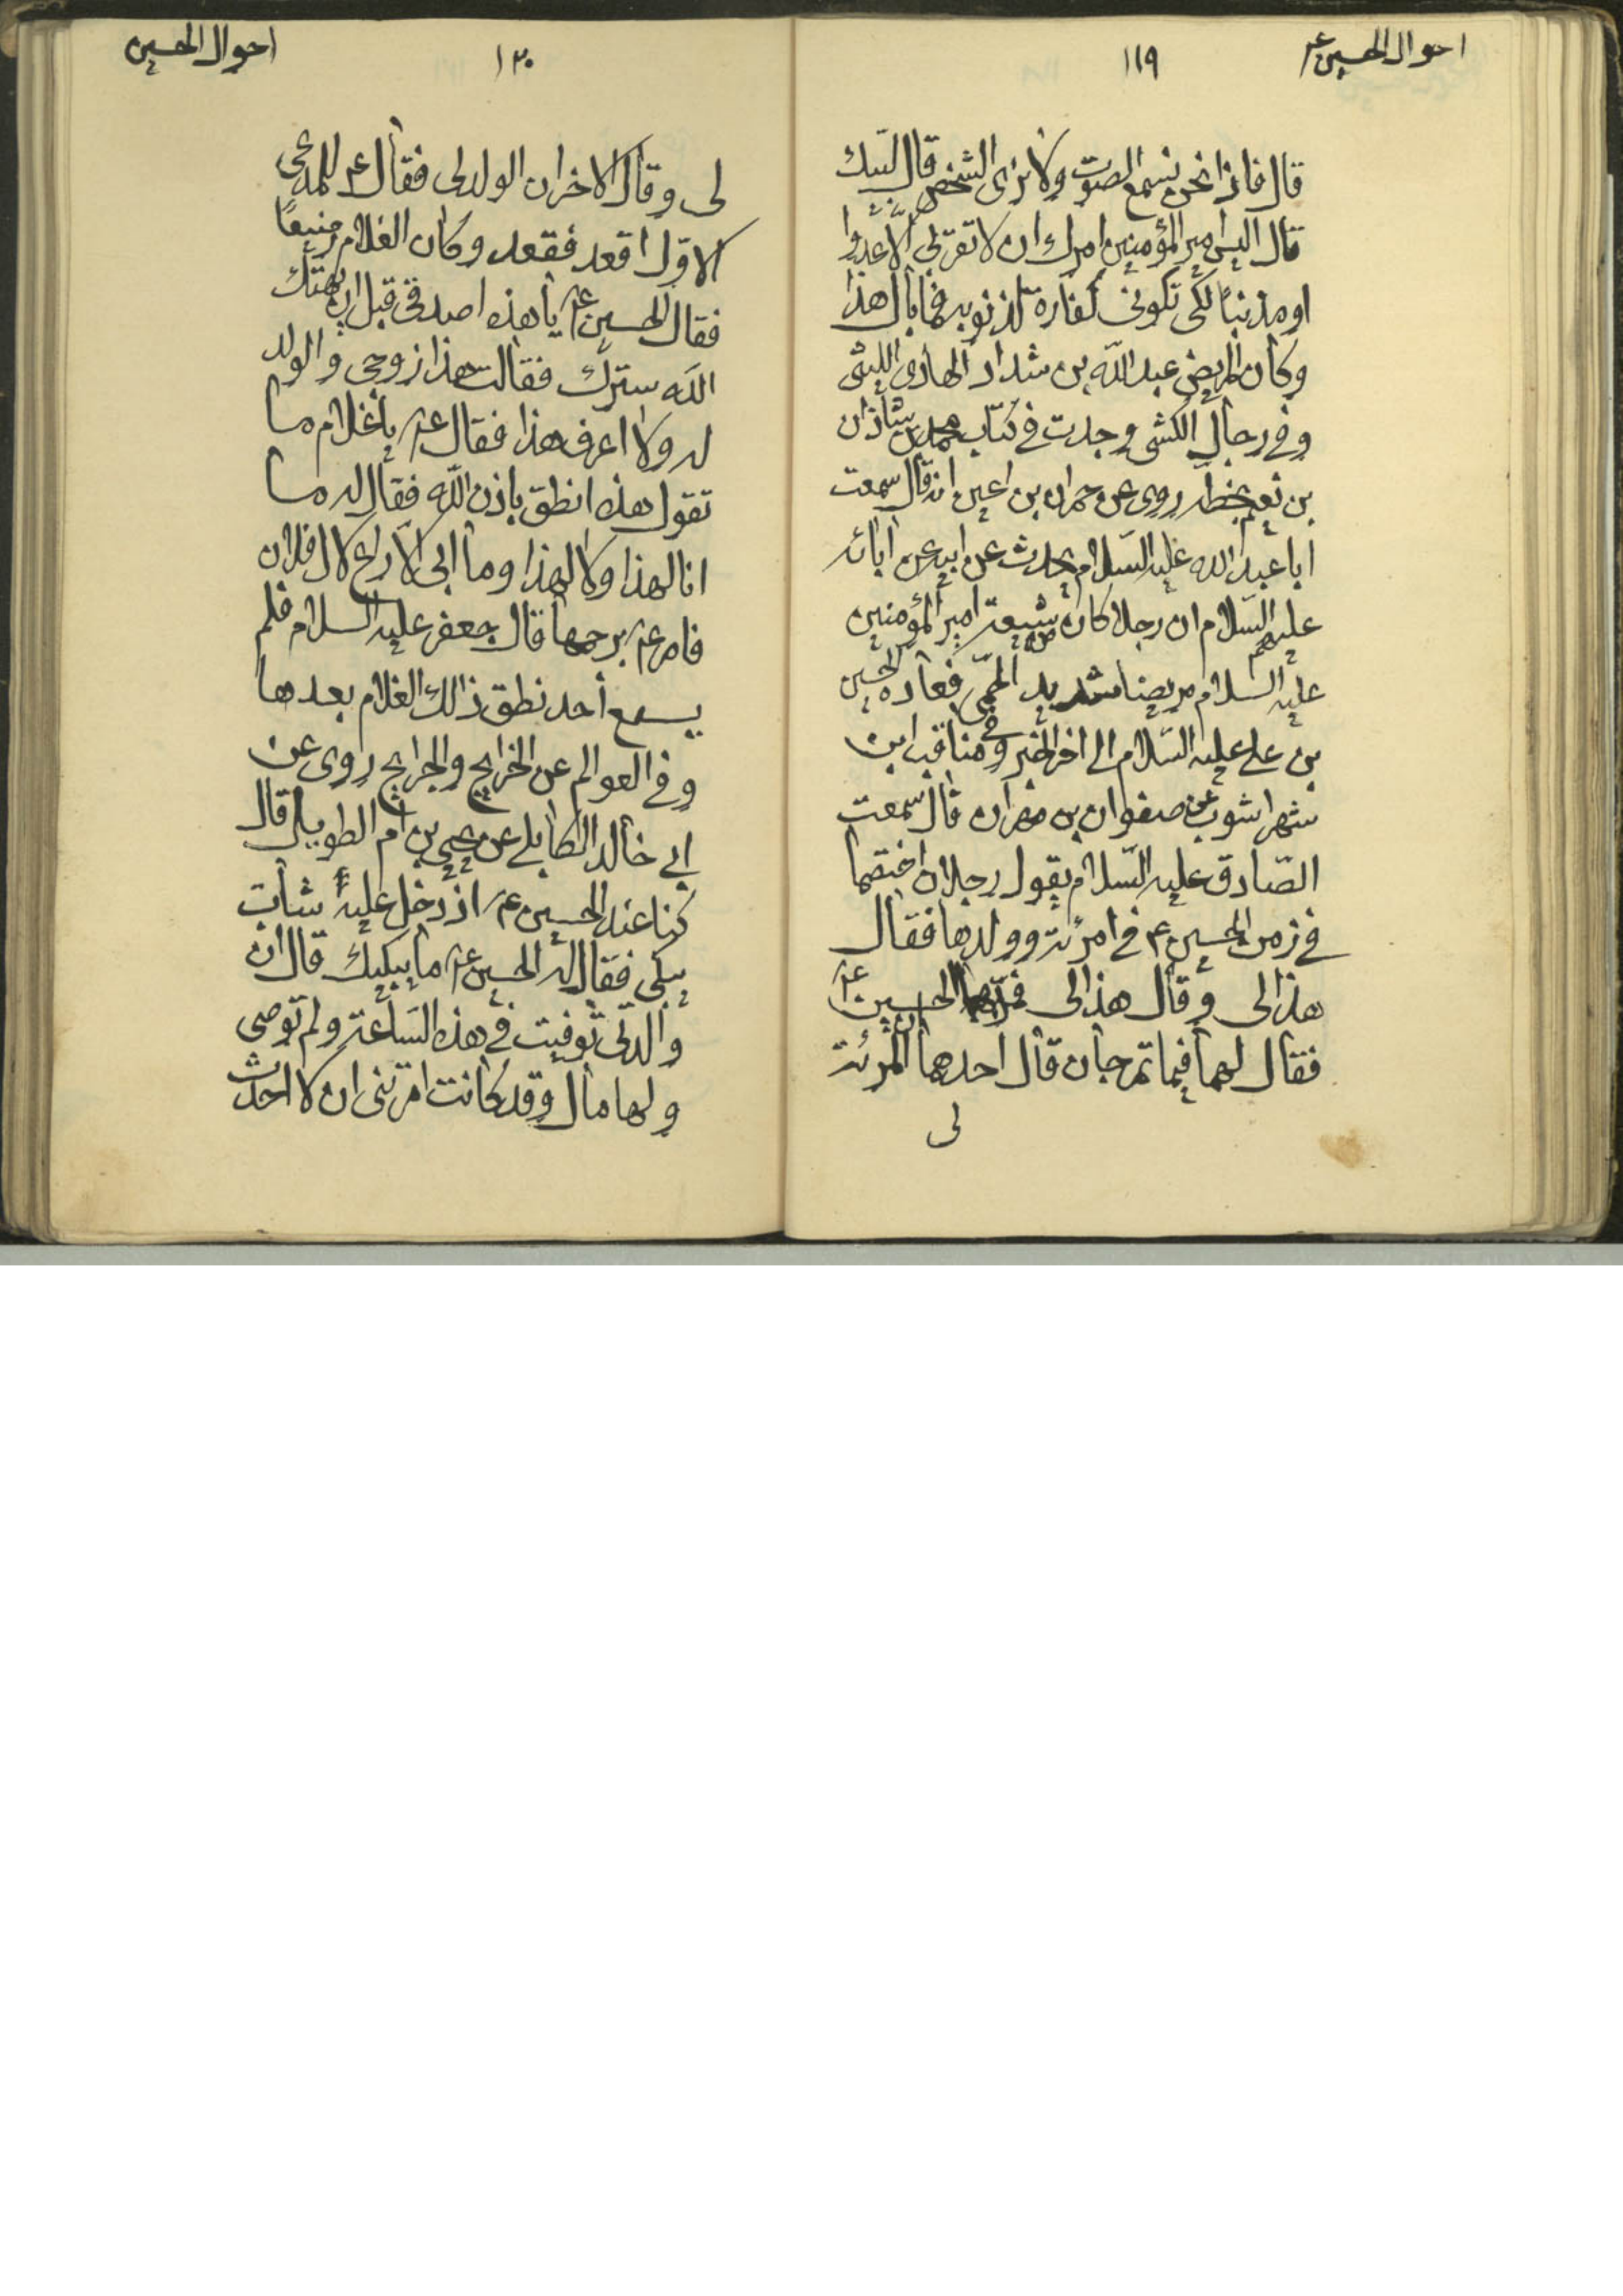 احوال الحسين ع
١١٩
قال فاذا نحن نسمع الصوت ولا نرى الشخص قال لبيك
قال اليس امير المؤمنين امرك ان لا تقربى الا عدوا
او مذنبا لكى تكونى كفارة لذنوبه فما بال هذا
وكان المريض عبد الله بن شداد الهادى الليثى
وفى رجال الكشى وجدت فى كتاب محمد بن شاذان
بن نعيم بخطه روى عن حمران بن اعين انه قال سمعت
ابا عبد الله عليه السلام يحدث عن ابيه عن ابائه
عليهم السلام ان رجلا كان من شيعة امير المؤمنين
عليه السلام مريضا شديد الحمى فعاده الحسين
بن على عليه السلام الى اخر الخبر وفى مناقب ابن
شهراشوب عن صفوان بن مهران قال سمعت
الصادق عليه السلام يقول رجلان اختصما
فى زمن الحسين ع فى امرئة وولدها فقال
هذا لى وقال هذا لى فمر بهما الحسين ع
فقال لهما فيما تمرجان قال احدهما ان المرئة
لى
احوال الحسين
١٢٠
لى وقال الاخر ان الولد لى فقال ع للمدعى
الاول اقعد فقعد وكان الغلام رضيعا
فقال الحسين ع يا هذه اصدقى قبل ان يهتك
الله سترك فقالت هذا زوجى والولد
له ولا اعرف هذا فقال ع يا غلام ما
تقول هذه انطق باذن الله فقال له ما
انا لهذا ولا لهذا وما ابى الا راع لال فلان
فامر ع برجمها قال جعفر عليه السلام فلم
يسمع أحد نطق ذالك الغلام بعدها
وفى العوالم عن الخرايج والجرايح روى عن
ابى خالد الكابلى عن يحيى بن ام الطويل قال
كنا عند الحسين ع اذ دخل عليه شاب
يبكى فقال له الحسين ع ما يبكيك قال ان
والدتى توفيت فى هذه الساعة ولم توصى
ولها مال وقد كانت امرتنى ان لا احدث